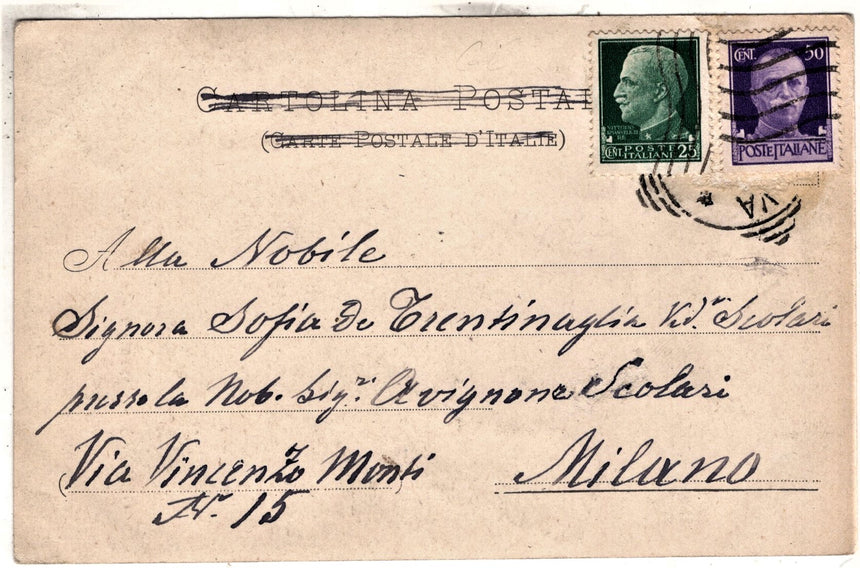 CARTOLINA POSTAL
(CARTE POSTALE D'ITALIE)
VITTORIO EMANUELE III
CENT. POSTE ITALIANE 25
CENT. 50
POSTE ITALIANE
VA *
Alla Nobile
Signora Sofia De Trentinaglia Vdª. Scolari
presso la Nob. Sigʳⁱ. Avignone Scolari
Via Vincenzo Monti
Milano
Nº. 15